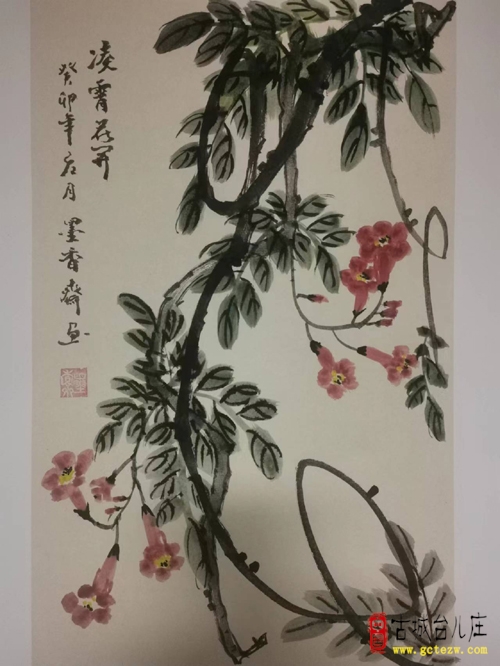 凌霄花开
癸卯年 月 墨香斋画
古城台儿庄
www.gctezw.com